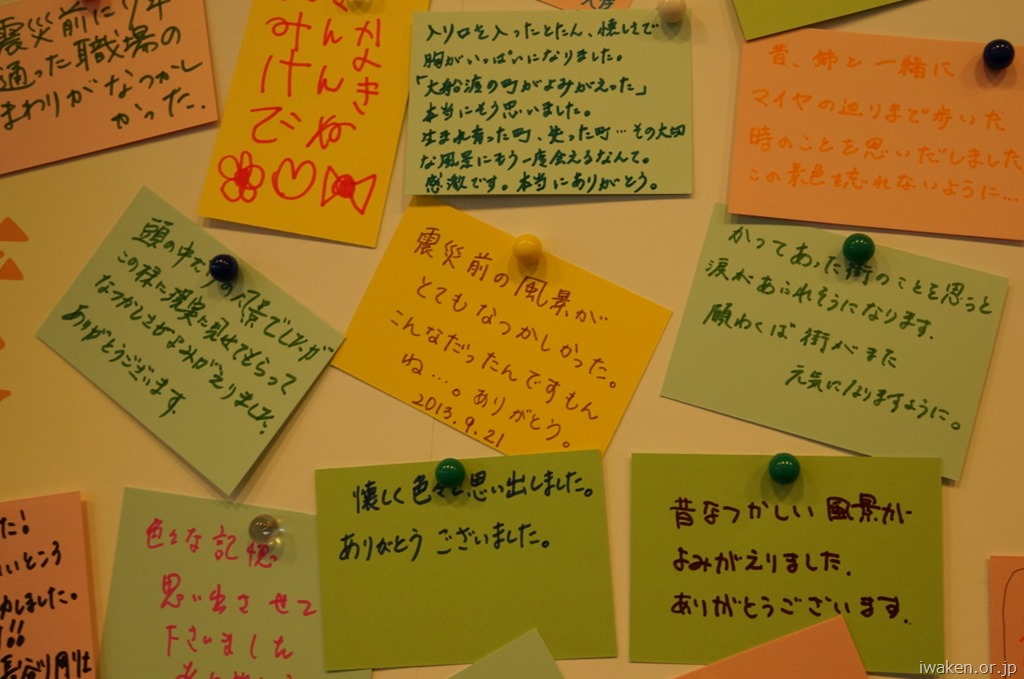 震災前に
通った職場の
まわりがなつかし
かった.
入り口を入ったとたん、懐しさで
胸がいっぱいになりました。
「大船渡の町がよみがえった」
本当にそう思いました。
生まれ育った町、失った町…その大切
な風景にもう一度会えるなんて。
感激です。本当にありがとう。
昔、姉と一緒に
マイヤの辺りまで歩いた
時のことを思いだしました
この景色を忘れないように…
頭の中だけの風景でしたが
この様に現実に見せてもらって
なつかしさがよみがえりました.
ありがとうございます.
震災前の風景が
とてもなつかしかった。
こんなだったんですもん
ね…。ありがとう。
2013.9.21
かつてあった街のことを思うと
涙があふれそうになります.
願わくば 街がまた
元気になりますように。
た!
いところ
しました。
!!
色々な記憶
思い出させて
下さいました
懐しく色々と思い出しました。
ありがとうございました。
昔なつかしい風景が
よみがえりました.
ありがとうございます.
iwaken.or.jp